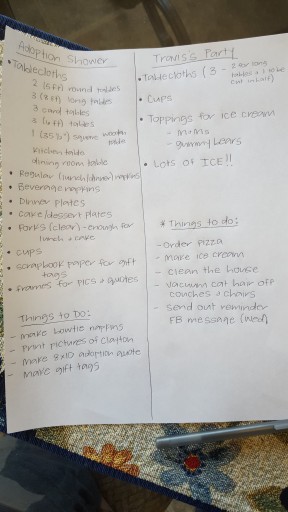 Adoption Shower
• Tablecloths
2 (5ft) round tables
3 (8ft) long tables
3 card tables
2 (4ft) tables
1 (35½") square wooden table
Kitchen table
dining room table
• Regular (lunch/dinner) napkins
• Beverage napkins
• Dinner plates
• Cake/dessert plates
• Forks (clear) - enough for
lunch & cake
• cups
• scrapbook paper for gift
tags
• frames for pics & quotes
Things to Do:
- make bowtie napkins
- Print pictures of Clayton
- Make 8x10 adoption quote
- Make gift tags
Travis's Party
• tablecloths (3 - 2 for long
tables & 1 to be
cut in half)
• Cups
• Toppings for ice cream
- m&ms
- gummy bears
• Lots of ICE!!
* Things to do:
- order pizza
- make ice cream
- clean the house
- vacuum cat hair off
couches & chairs
- send out reminder
FB message (Wed)